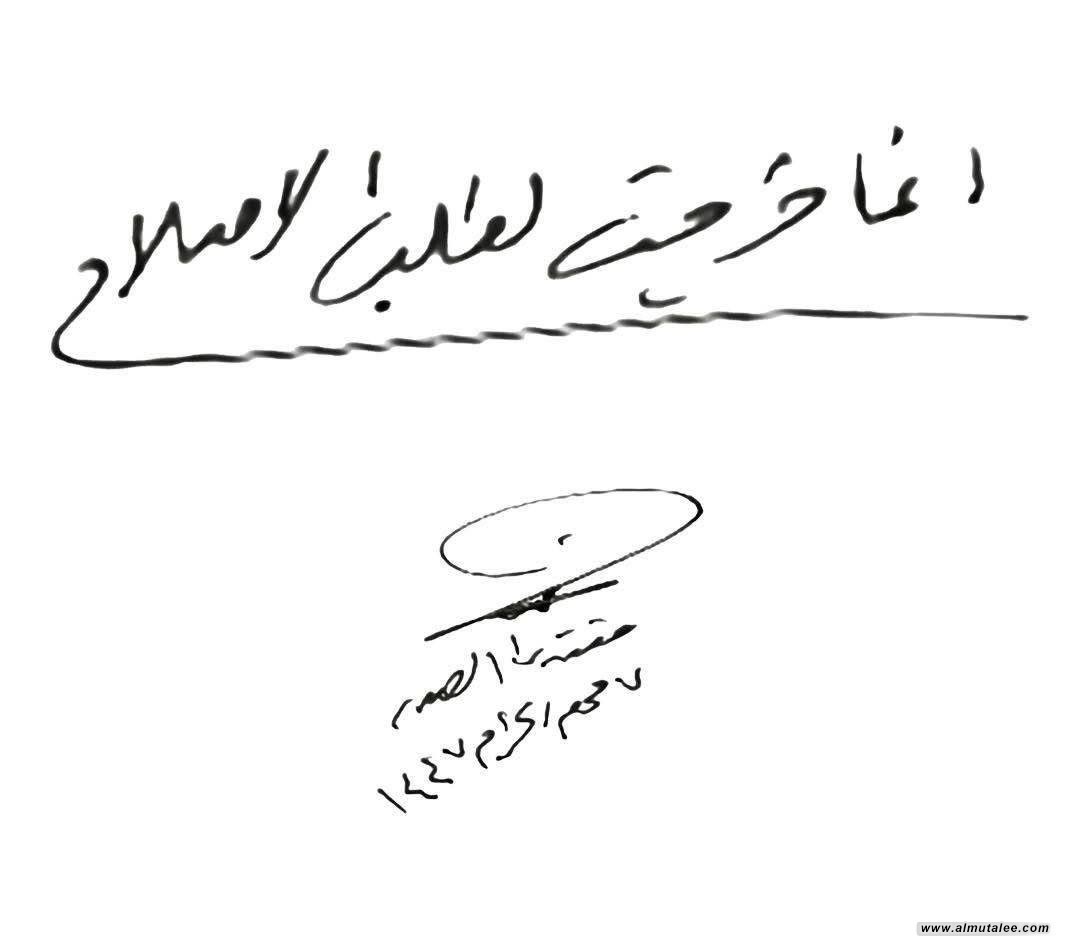 انما خرجت لطلب الاصلاح
مقتدى الصدر
٧ محرم الحرام ١٤٤٧
www.almutalee.com